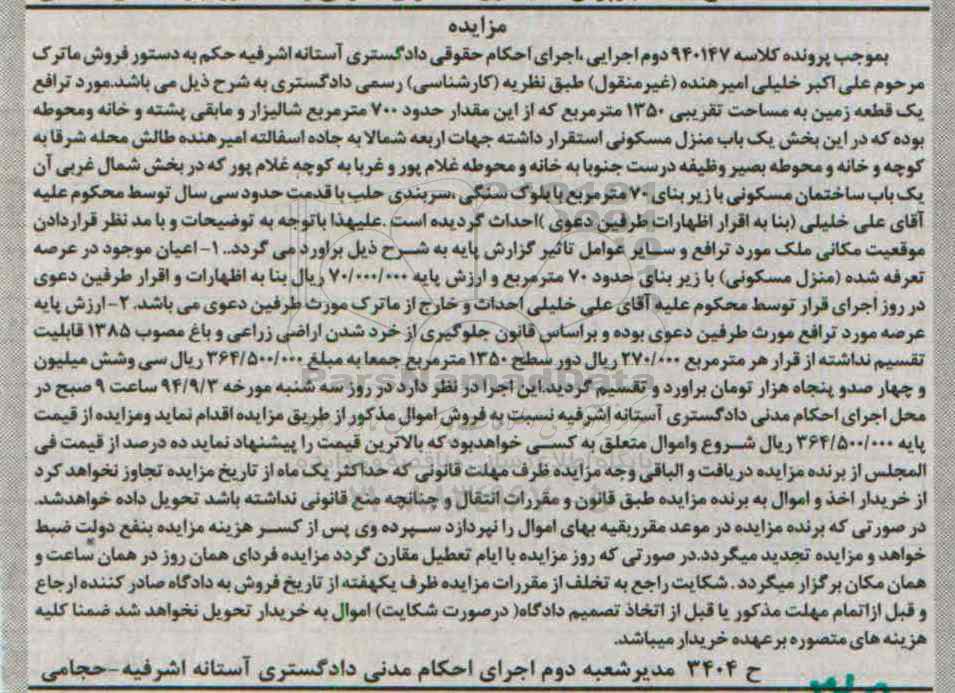 مزایده
بموجب پرونده کلاسه ۹۴۰۱۴۷ دوم اجرایی ،اجرای احکام حقوقی دادگستری آستانه اشرفیه حکم به دستور فروش ماترک
مرحوم علی اکبر خلیلی امیرهنده (غیرمنقول) طبق نظریه (کارشناسی) رسمی دادگستری به شرح ذیل می باشد.مورد ترافع
یک قطعه زمین به مساحت تقریبی ۱۳۵۰ مترمربع که از این مقدار حدود ۷۰۰ مترمربع شالیزار و مابقی پشته و خانه ومحوطه
بوده که در این بخش یک باب منزل مسکونی استقرار داشته جهات اربعه شمالا به جاده اسفالته امیرهنده طالش محله شرقا به
کوچه و خانه و محوطه بصیر وظیفه درست جنوبا به خانه و محوطه غلام پور و غربا به کوچه غلام پور که در بخش شمال غربی آن
یک باب ساختمان مسکونی با زیر بنای ۷۰ مترمربع با بلوک سنگی ،سربندی حلب با قدمت حدود سی سال توسط محکوم علیه
آقای علی خلیلی (بنا به اقرار اظهارات طرفین دعوی )احداث گردیده است .علیهذا باتوجه به توضیحات و با مد نظر قراردادن
موقعیت مکانی ملک مورد ترافع و سایر عوامل تاثیر گزارش پایه به شرح ذیل براورد می گردد.. ۱-اعیان موجود در عرصه
تعرفه شده (منزل مسکونی) با زیر بنای حدود ۷۰ مترمربع و ارزش پایه ۷۰/۰۰۰/۰۰۰ ریال بنا به اظهارات و اقرار طرفین دعوی
در روز اجرای قرار توسط محکوم علیه آقای علی خلیلی احداث و خارج از ماترک مورث طرفین دعوی می باشد. ۲-ارزش پایه
عرصه مورد ترافع مورث طرفین دعوی بوده و براساس قانون جلوگیری از خرد شدن اراضی زراعی و باغ مصوب ۱۳۸۵ قابلیت
تقسیم نداشته از قرار هر مترمربع ۲۷۰/۰۰۰ ریال دور سطح ۱۳۵۰ مترمربع جمعا به مبلغ ۳۶۴/۵۰۰/۰۰۰ ریال سی وشش میلیون
و چهار صدو پنجاه هزار تومان براورد و تقسیم گردید.این اجرا در نظر دارد در روز سه شنبه مورخه ۹۴/۹/۳ ساعت ۹ صبح در
محل اجرای احکام مدنی دادگستری آستانه اشرفیه نسبت به فروش اموال مذکور از طریق مزایده اقدام نماید ومزایده از قیمت
پایه ۳۶۴/۵۰۰/۰۰۰ ریال شروع واموال متعلق به کسی خواهدبود که بالاترین قیمت را پیشنهاد نماید ده درصد از قیمت فی
المجلس از برنده مزایده دریافت و الباقی وجه مزایده ظرف مهلت قانونی که حداکثر یک ماه از تاریخ مزایده تجاوز نخواهد کرد
از خریدار اخذ و اموال به برنده مزایده طبق قانون و مقررات انتقال و چنانچه منع قانونی نداشته باشد تحویل داده خواهدشد.
در صورتی که برنده مزایده در موعد مقرربقیه بهای اموال را نپردازد سپرده وی پس از کسر هزینه مزایده بنفع دولت ضبط
خواهد و مزایده تجدید میگردد.در صورتی که روز مزایده با ایام تعطیل مقارن گردد مزایده فردای همان روز در همان ساعت و
همان مکان برگزار میگردد . شکایت راجع به تخلف از مقررات مزایده ظرف یکهفته از تاریخ فروش به دادگاه صادر کننده ارجاع
و قبل ازاتمام مهلت مذکور یا قبل از اتخاذ تصمیم دادگاه( درصورت شکایت) اموال به خریدار تحویل نخواهد شد ضمنا کلیه
هزینه های متصوره بر عهده خریدار میباشد.
ح ۳۴۰۴ مدیرشعبه دوم اجرای احکام مدنی دادگستری آستانه اشرفیه-حجامی